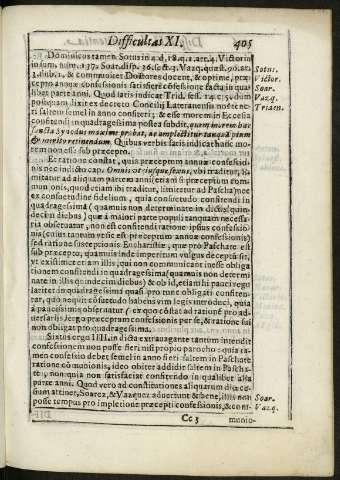 Difficultas XI. 405
Dominicus tamen Sotus in 4. d. 18. q. 1. art. 4. Victor in
summ. num. 137. Soar. disp. 36. sect. 3. Vazq. quæst. 90. art.
1. dub. 2. & communiter Doctores docent, & optime, præ-
cepto annuæ confessionis satisfieri confessione facta in qua-
libet parte anni. Quod satis indicat Trid. sess. 14. c. 5. dum
posteaquam dixit ex decreto Concilij Lateranensis
ri saltem semel in anno confiteri; & esse morem in Ecclesia
confitendi in quadragesima postea subdit, quem morem hæc
sancta Synodus maxime probat, ac amplectitur tanquam pium
& merito retinendum. Quibus verbis satis indicat hunc mo-
rem non esse sub præcepto.
Et ratione constat, quia præceptum annuæ confessio-
nis nec indicto cap. Omnis utriusque sexus, ubi traditur, li-
mitatur ad aliquam partem anni; etiam si præceptum com-
munionis, quod etiam ibi traditur, limitetur ad Pascha; nec
ex consuetudine fidelium, quia consuetudo confitendi in
quadragesima (quamuis non determinate in dictis quin-
decim diebus) quæ à maiori parte populi tanquam necessa-
ria obseruatur, non est confitendi ratione ipsius confessio-
nis (cuius tantum vese est præceptum annuæ confessionis)
sed ratione susceptionis Eucharistiæ, quæ pro Paschate est
sub præcepto; quamuis inde imperitum vulgus deceptum sit,
vt existimet etiam illis, qui non communicant inesse obliga-
tionem confitendi in quadragesima (quamuis non determi-
nate in illis quindecim diebus) & ob id, etiam hi pauci regu-
lariter in quadragesima quasi pro tunc obligati confiten-
tur, quo nequit consuetudo habens vim legis introduci, quia
à paucissimis obseruatur (ex quo constat ad rationem pro ad-
uersarijs) ergo præceptum confessionis per se, & ratione sui
non obligat pro quadragesima.
Sixtus ergo IIII. in dicta extrauagante tantum intendit
confessionem non posse fieri nisi proprio parocho: quia ta-
men confessio debet semel in anno fieri saltem in Paschate
ratione communionis, ideo obiter addidit saltem in Pascha-
te; non quia non satisfaciat confitendo in qualibet alia
parte anni. Quod vero ad constitutiones aliquarum diœce-
sium attinet, Soarez, & Vazquez aduertunt bene, illis non
posse tempus pro impletione præcepti confessionis, & com-
Cc 3 munio-
Sotus.
Victor.
Soar.
Vazq.
Triden.
Soar.
Vazq.